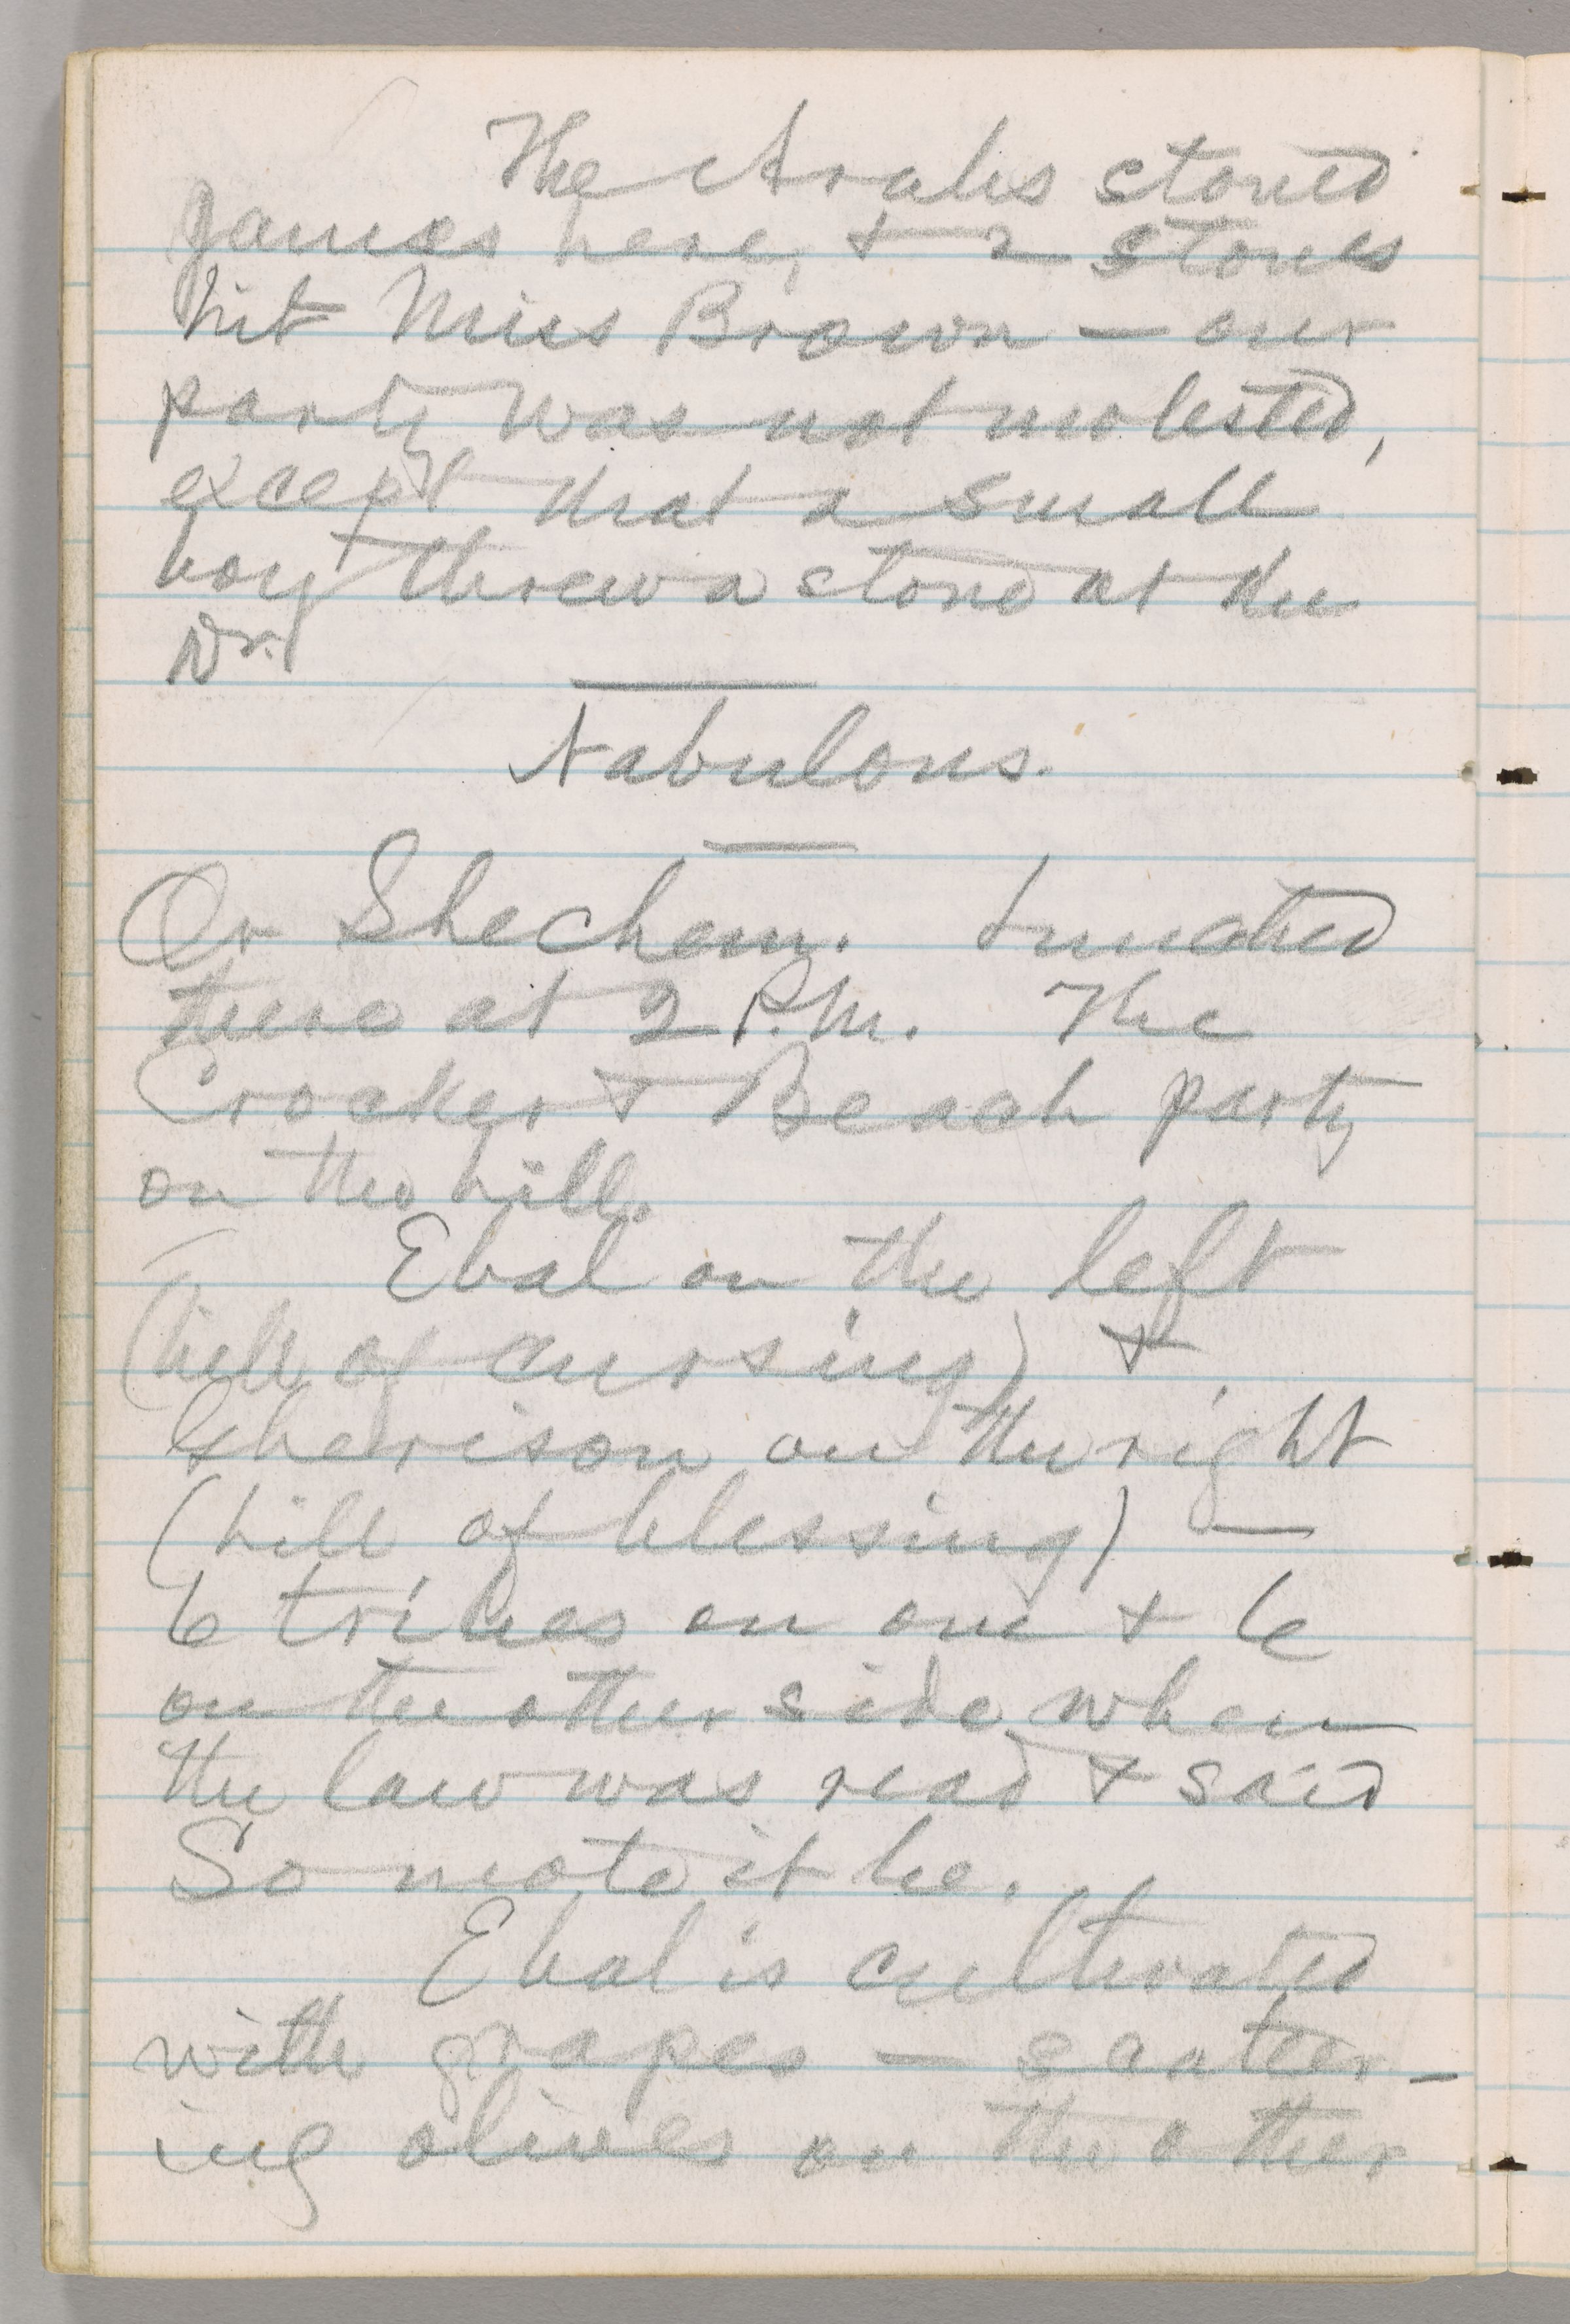 The Arabs stoned
James here, & 2 stones
hit Miss Brown — our
party was not molested,
except that a small
boy threw a stone at the
Dr.
Nabulous.
Or Shechem. Lunched
there at 2 P.M. The
Crocker & Beach party
on the hill.
Ebal on the left
(hill of cursing) &
Gherison on the right
(hill of blessing) —
6 tribes on one & 6
on the other side when
the law was read & said
So mote it be.
Ebal is cultivated
with grapes — scatter-
ing olives on the other